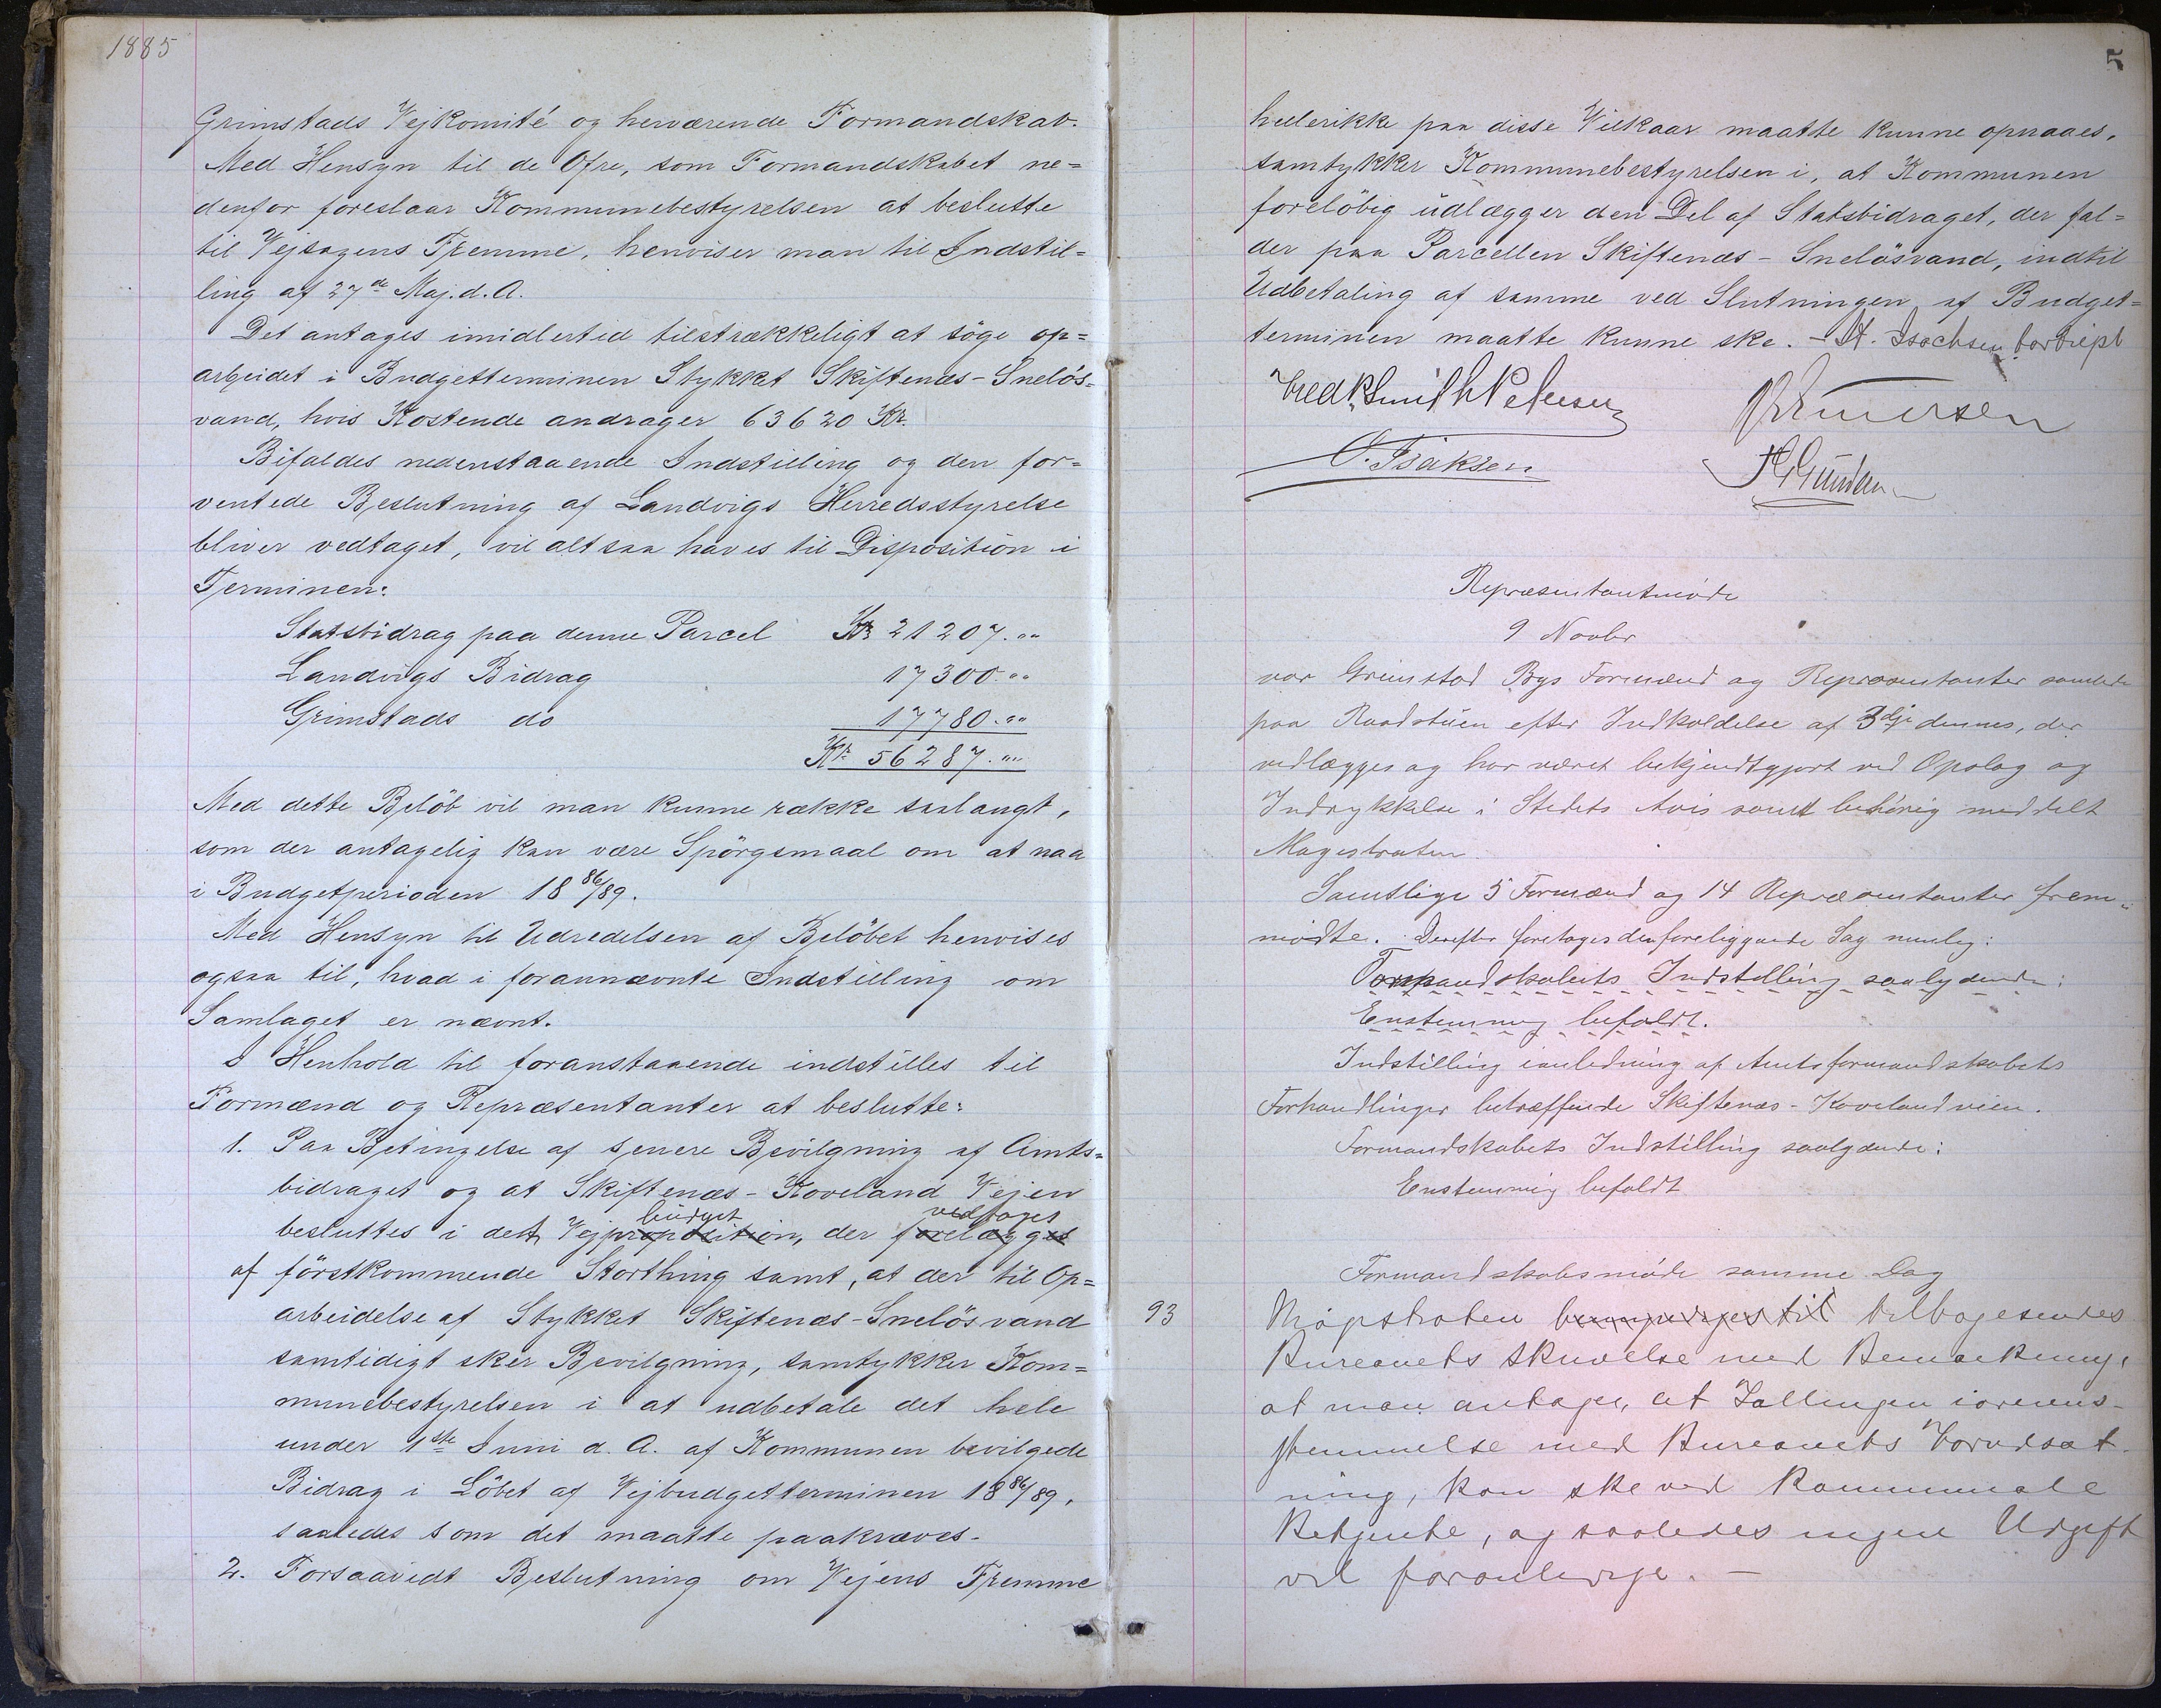 1885
Grimstads Vejkomité og herværende Formandskab.
Med Hensyn til de Ofre, som Formandskabet ne=
denfor foreslaar Kommunebestyrelsen at beslutte
til Vejsagens Fremme, henviser man til Indstil=
ling af 27de Maj. d. A.
Det antages imidlertid tilstrækkeligt at söge op=
arbeidet i Budgetterminen Stykket Skiftenæs-Snelös=
vand, hvis Kostende andrager 63620 Kr.
Bifaldes nedenstaaende Indstilling og den for=
ventede Beslutning af Landvigs Herredsstyrelse
bliver vedtaget, vil altsaa haves til Disposition i
Terminen:
Statsbidrag paa denne Parcel Kr 21207.""
Landvigs Bidrag 17300.""
Grimstads do 17780.""
Kr. 56287.""
Med dette Belöb vil man kunne række saalangt,
som der antagelig kan være Spörgsmaal om at naa
i Budgetperioden 1886/89.
Med Hensyn til Udredelsen af Belöbet henvises
ogsaa til, hvad i forannævnte Indstilling om
Samlaget er nævnt.
I Henhold til foranstaaende indstilles til
Formænd og Repræsentanter at beslutte:
1. Paa Betingelse af senere Bevilgning af Amts=
bidraget og at Skiftenæs-Koveland Vejen
budget vedtages
besluttes i det Vejproposition, der forelægges
af förstkommende Storthing samt, at der til Op=
arbeidelse af Stykket Skiftenæs-Snelösvand
samtidigt sker Bevilgning, samtykker Kom=
munebestyrelsen i at udbetale det hele
under 1ste Juni d. A. af Kommunen bevilgede
Bidrag i Löbet af Vejbudgetterminen 1886/89,
saaledes som det maatte paakræves.
2. Forsaavidt Beslutning om Vejens Fremme
5
hellerikke paa disse Vilkaar maatte kunne opnaaes,
samtykker Kommunebestyrelsen i, at Kommunen
forelöbig udlægger den Del af Statsbidraget, der fal=
der paa Parcellen Skiftenæs-Snelösvand, indtil
Udbetaling af samme ved Slutningen af Budget=
terminen maatte kunne ske. - H. Isachsen
Fredk Smith Petersen
O. Isaksen
Repræsentantmøde
9 Novbr
var Grimstad Bys Formænd og Repræsentanter samlede
paa Raadstuen efter Indkaldelse af 3dje dennes, der
vedlægges og har været bekjendtgjort ved Opslag og
Indrykkelse i Stedets Avis samt behörig meddelt
Magistraten.
Samtlige 5 Formænd og 14 Repræsentanter frem=
mødte. Derefter foretoges den foreliggende Sag nemlig:
Formandskabets Indstilling saalydende:
Enstemmig bifaldt.
Indstilling i anledning af Amtsformandskabets
Forhandlinger betræffende Skiftenæs-Kovelandveien.
Formandskabets Indstilling saalydende:
Enstemmig bifaldt
Formandskabsmöde samme Dag
93 Magistraten til tilbagesendes
Bureauets Skrivelse med Bemærkning,
at man antager, at Tællingen i overens-
stemmelse med Bureauets Forudsæt-
ning, kan ske ved kommunale
Betjente, og saaledes ingen Udgift
vil foranledige. -